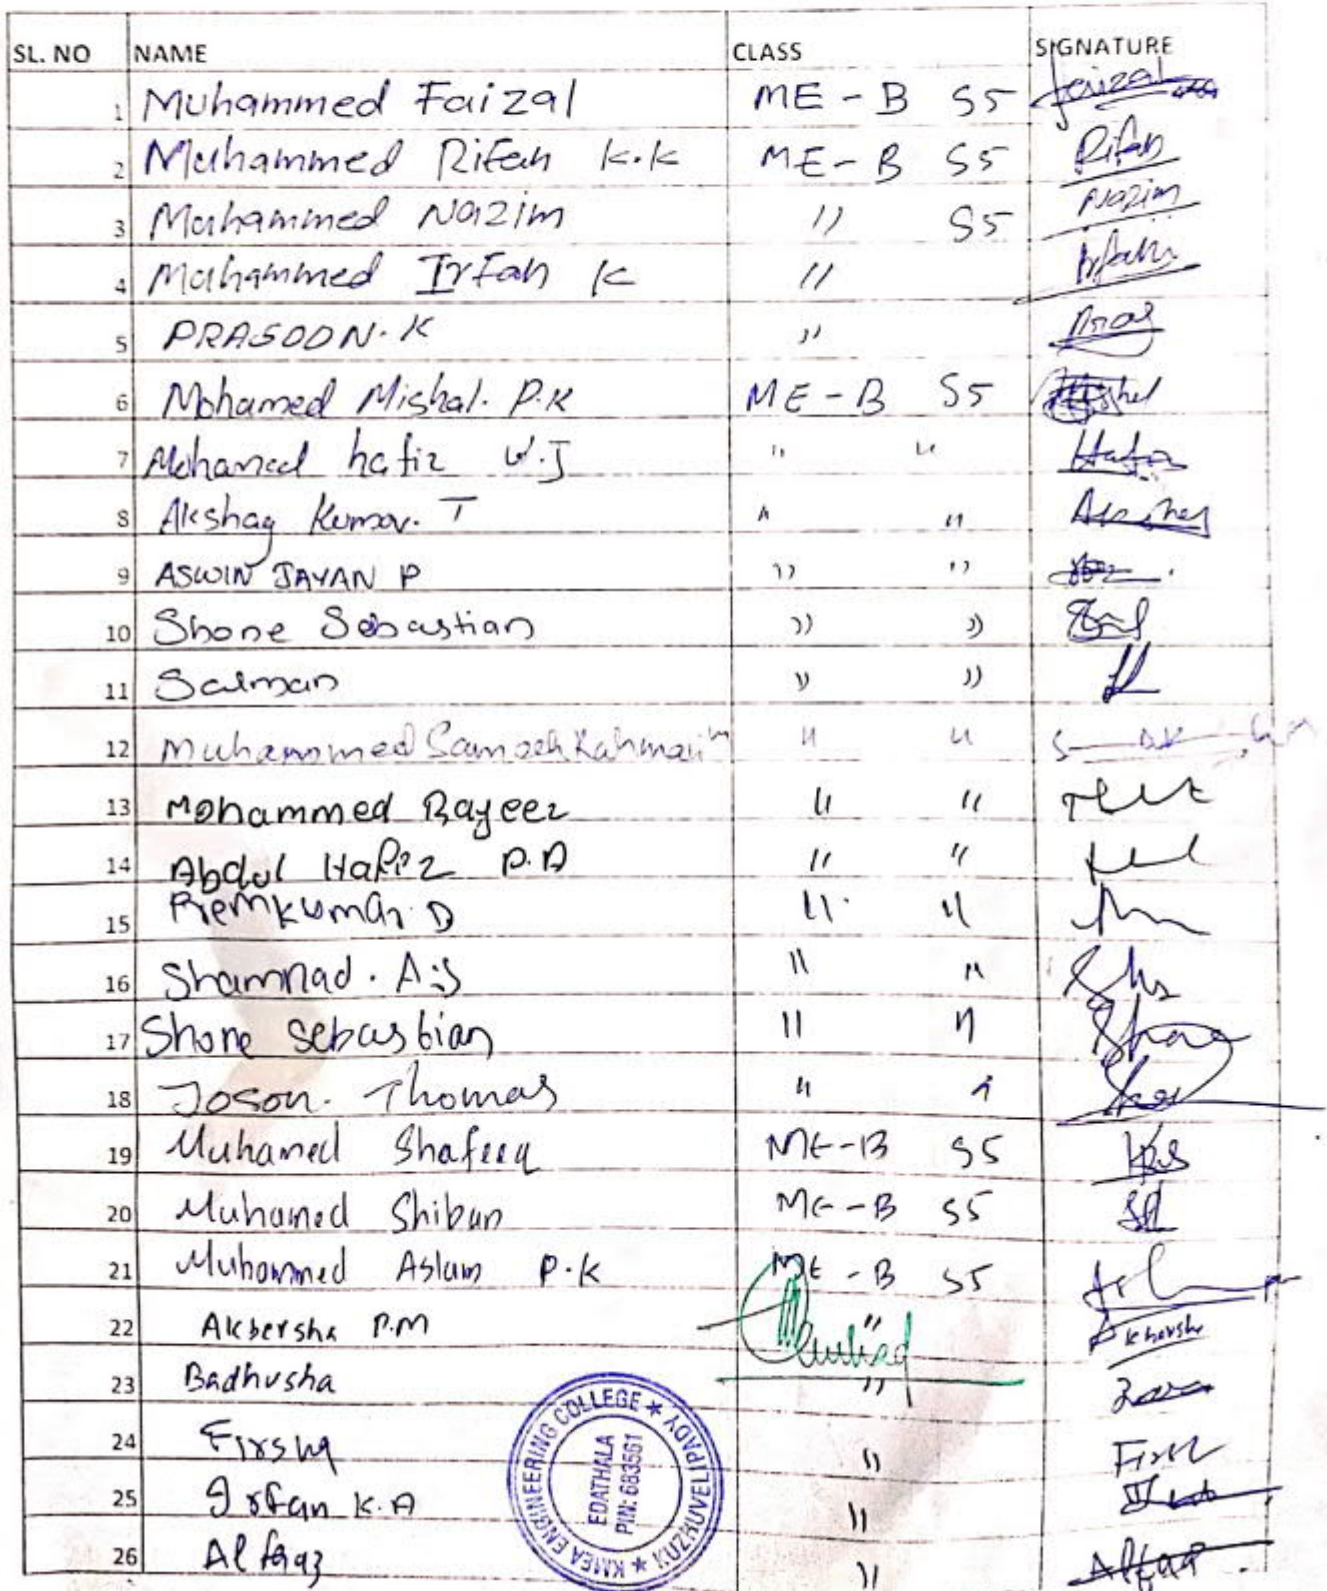 SL. NO NAME CLASS SIGNATURE
1 Muhammed Faizal ME - B S5 Faizal
2 Muhammed Rifah K.K ME - B S5 Rifah
3 Muhammed Nazim " S5 Nazim
4 Muhammed Irfah K " Irfah
5 PRASOON. K "
6 Mohamed Mishal. P.K ME - B S5
7 Mohamed hafiz V.J " " Hafiz
8 Akshay Kumar. T " " Akshay
9 ASWIN JAYAN P " "
10 Shone Sebastian " "
11 Salman " "
12 Muhammed Rahman " "
13 Mohammed Rayeez " "
14 Abdul Hafiz P.A " "
15 Premkumar. D " "
16 Shamnad. A.S " "
17 Shone Sebastian " "
18 Joson. Thomas " "
19 Muhamed Shafeeq ME-B S5
20 Muhamed Shiban ME-B S5
21 Muhammed Aslam P.K ME - B S5
22 Akbersha P.M " Akbersha
23 Badhusha "
24 Firsha "
25 Irfan K.A "
26 Alfaaz "
KMEA ENGINEERING COLLEGE * KUZHUVELIPADY *
EDATHALA
PIN: 683561